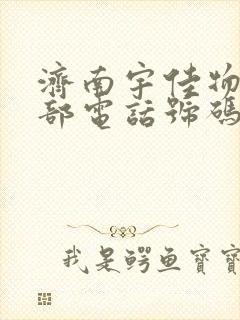 濟南宇佳物
部電話號碼
我是鳄鱼寶寶